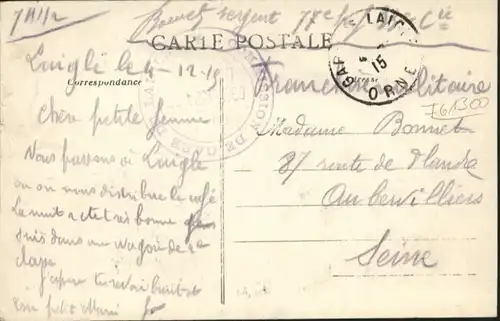 Bonnet sergent 77e
CARTE POSTALE
Correspondance
Adresse
GARE LAIGLE
15
ORNE
COMMISSION DE GARE DE LAIGLE
Franchise Militaire
761300
Laigle le 4-12-15
Chère petite femme
Nous passons à Laigle
ou on nous distribue le café
La nuit a été très bonne
suis dans un wagon de 2e
classe
J'espère te revoir bientot
Ton petit Mari
Madame Bonnet
87 route de Flandre
Aubervilliers
Seine